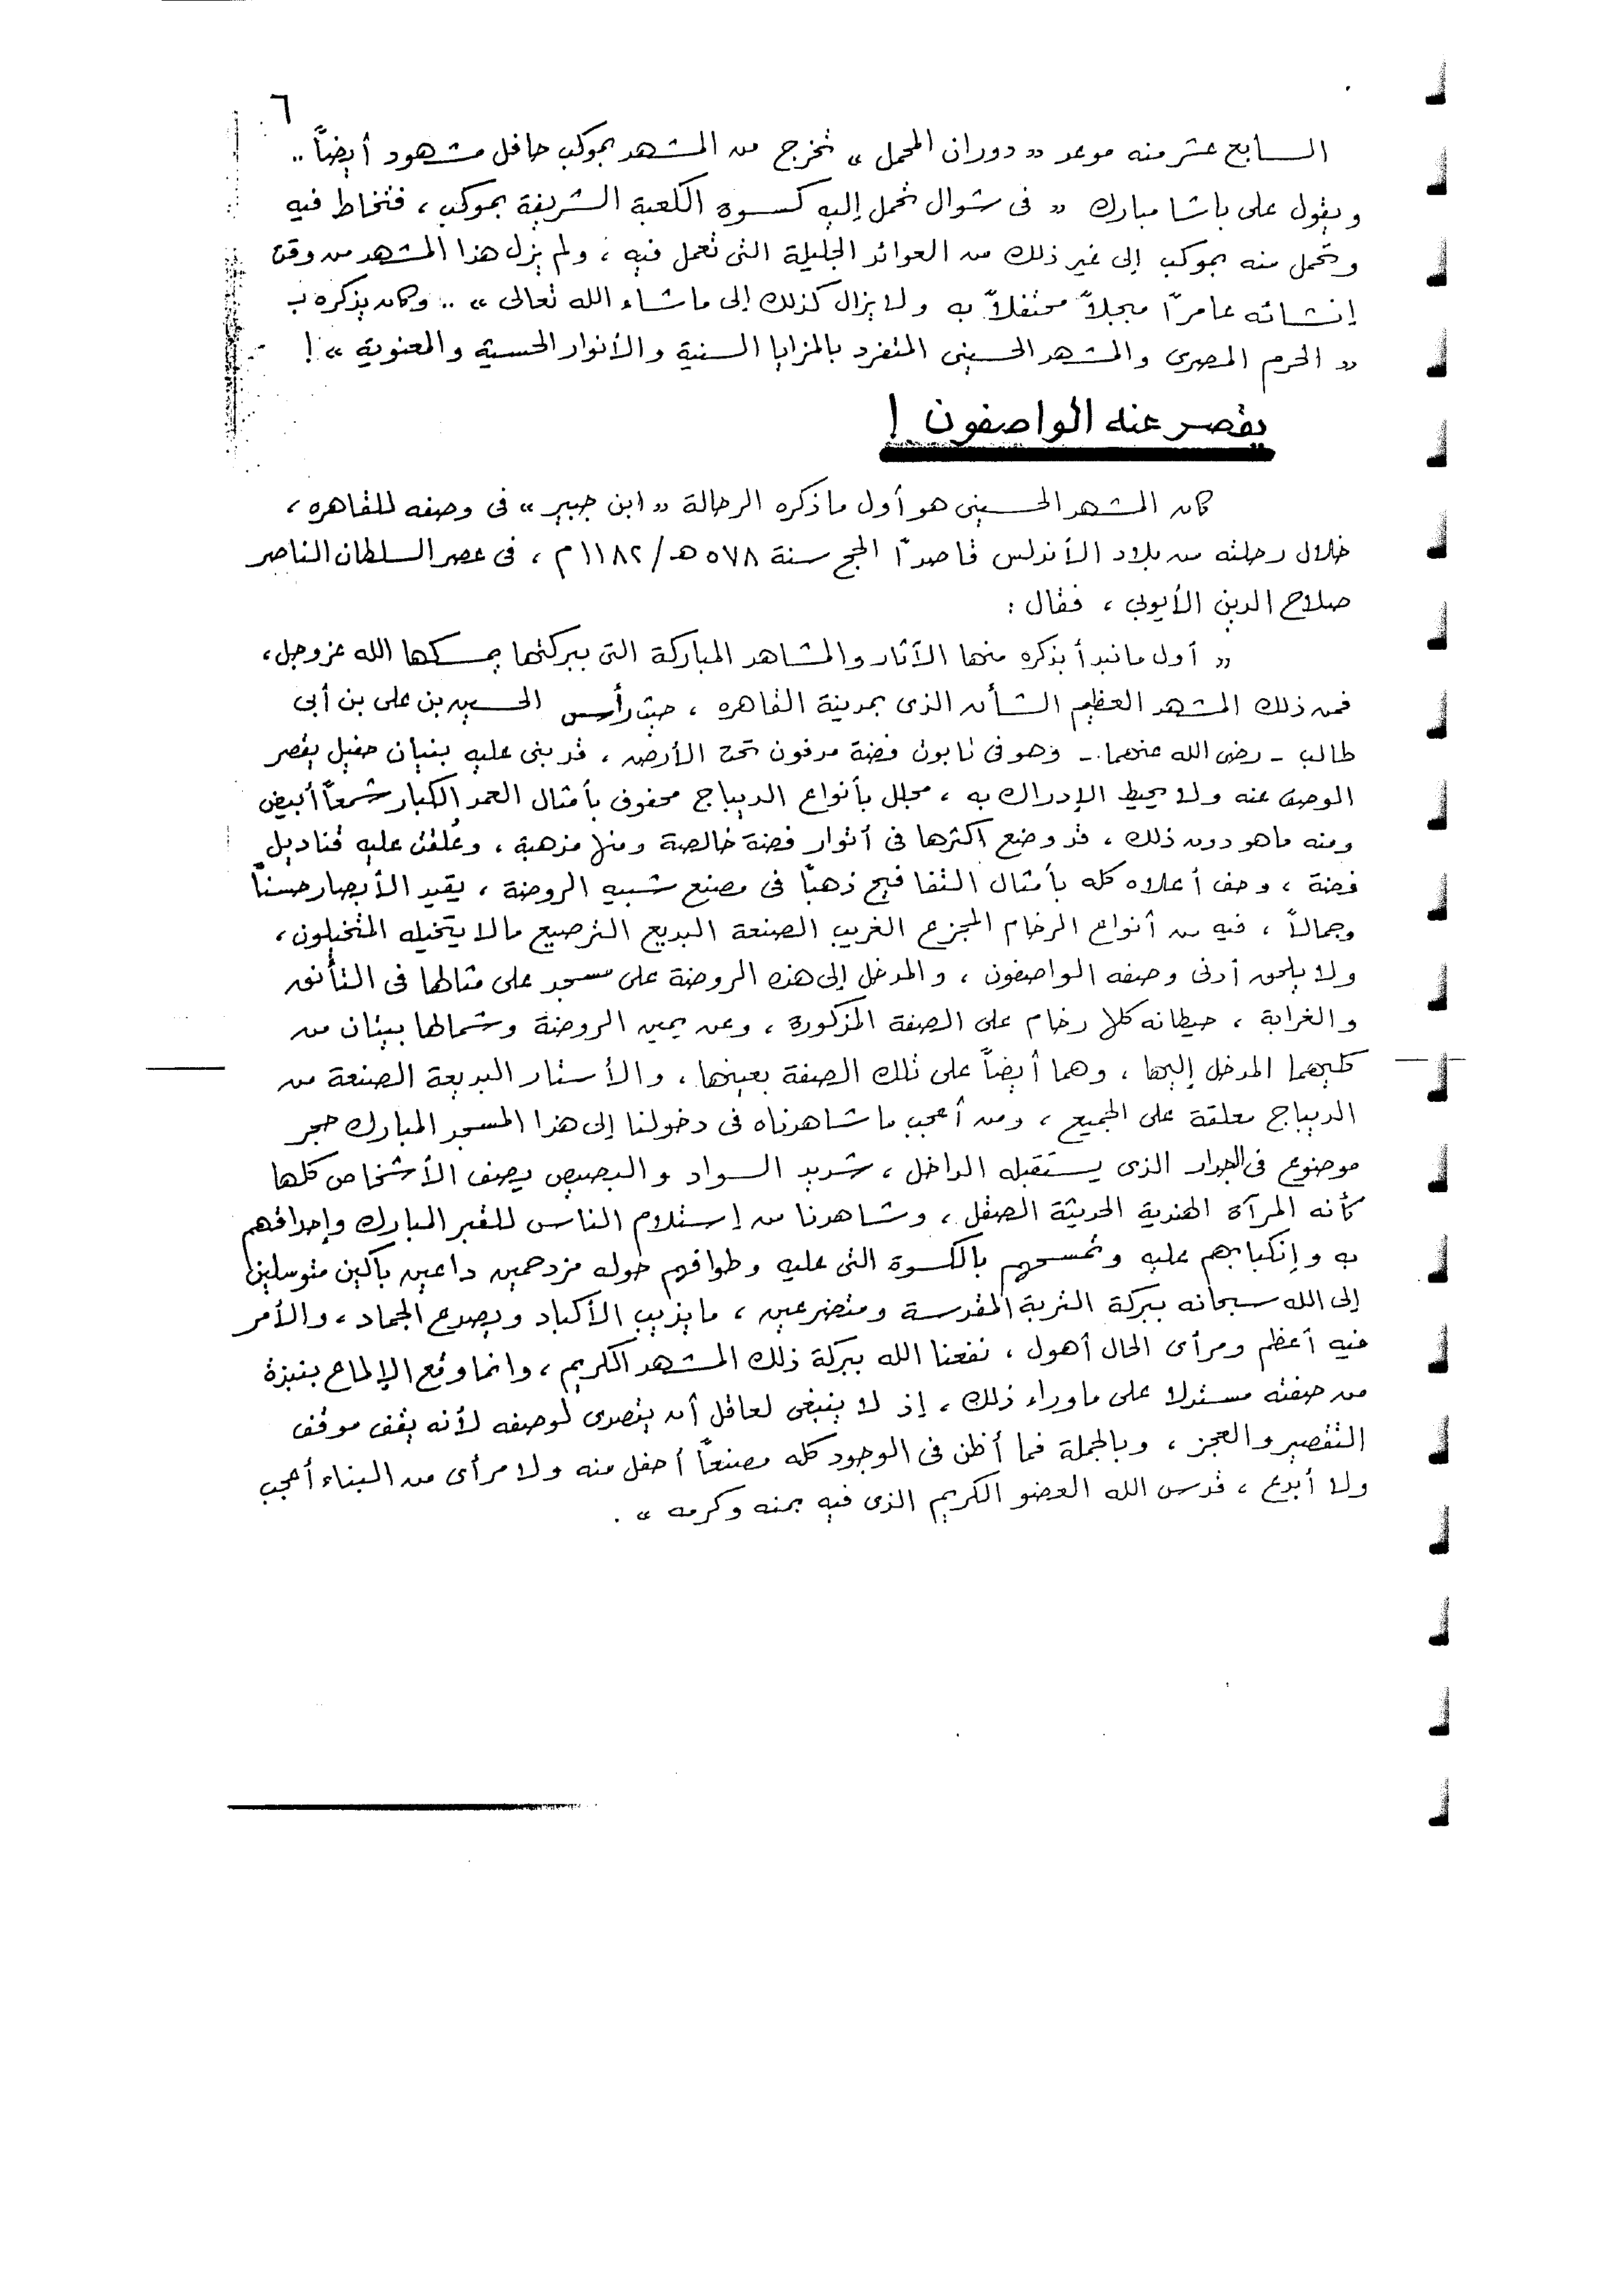 ٦
السابع عشر منه موعد « دوران المحمل » تخرج من المشهد بموكب حافل مشهود أيضاً ..
ويقول على باشا مبارك « فى شوال تحمل إليه كسوة الكعبة الشريفة بموكب ، فتخاط فيه
وتحمل منه بموكب إلى غير ذلك من العوائد الجليلة التى تعمل فيه ، ولم يزل هذا المشهد من وقت
إنشائه عامراً مبجلاً محتفلاً به ولا يزال كذلك إلى ما شاء الله تعالى » .. وكان يذكره بـ
« الحرم المصرى والمشهد الحسينى المتفرد بالمزايا السنية والأنوار الحسية والمعنوية » !
يقصر عنه الواصفون !
كان المشهد الحسينى هو أول ما ذكره الرحالة « ابن جبير » فى وصفه للقاهره ،
خلال رحلته من بلاد الأندلس قاصداً الحج سنة ٥٧٨ هـ / ١١٨٢ م ، فى عصر السلطان الناصر
صلاح الدين الأيوبي ، فقال :
« أول ما نبدأ بذكره منها الآثار والمشاهد المباركة التى ببركتها يمسكها الله عز وجل ،
فمن ذلك المشهد العظيم الشأن الذى بمدينة القاهره ، حيث رأس الحسين بن على بن أبى
طالب - رضى الله عنهما - وهو فى تابوت فضة مدفون تحت الأرض ، قد بنى عليه بنيان حفيل يقصر
الوصف عنه ولا يحيط الإدراك به ، مجلل بأنواع الديباج محفوف بأمثال العمد الكبار شمعاً أبيض
ومنه ما هو دون ذلك ، قد وضع أكثرها فى أتوار فضة خالصة ومنها مذهبة ، وعُلقت عليه قناديل
فضة ، وحف أعلاه كله بأمثال التفافيح ذهباً فى مصنع شبيه الروضة ، يقيد الأبصار حسناً
وجمالاً ، فيه من أنواع الرخام المجزع الغريب الصنعة البديع الترصيع مالا يتخيله المتخيلون ،
ولا يلحق أدنى وصفه الواصفون ، والمدخل إلى هذه الروضة على مسجد على مثالها فى التأنق
والغرابة ، حيطانه كلها رخام على الصفة المذكورة ، وعن يمين الروضة وشمالها بيتان من
كليهما المدخل إليها ، وهما أيضاً على تلك الصفة بعينها ، والأستار البديعة الصنعة من
الديباج معلقة على الجميع ، ومن أعجب ما شاهدناه فى دخولنا إلى هذا المسجد المبارك حجر
موضوع فى الجدار الذى يستقبله الداخل ، شديد السواد والبصيص يصف الأشخاص كلها
كأنه المرآة الهندية الحديثة الصقل ، وشاهدنا من إستلام الناس للقبر المبارك وإحداقهم
به وإنكبابهم عليه وتمسحهم بالكسوة التى عليه وطوافهم حوله مزدحمين داعين باكين متوسلين
إلى الله سبحانه ببركة التربة المقدسة ومتضرعين ، ما يذيب الأكباد ويصدع الجماد ، والأمر
فيه أعظم ومرأى الحال أهول ، نفعنا الله ببركة ذلك المشهد الكريم ، وانما وقع الإلماع بنبذة
من صفته مستدلا على ما وراء ذلك ، إذ لا ينبغى لعاقل أن يتصدى لوصفه لأنه يقف موقف
التقصير والعجز ، وبالجملة فما أظن فى الوجود كله مصنعاً أحفل منه ولا مرأى من البناء أعجب
ولا أبدع ، قدس الله العضو الكريم الذى فيه بمنه وكرمه » .